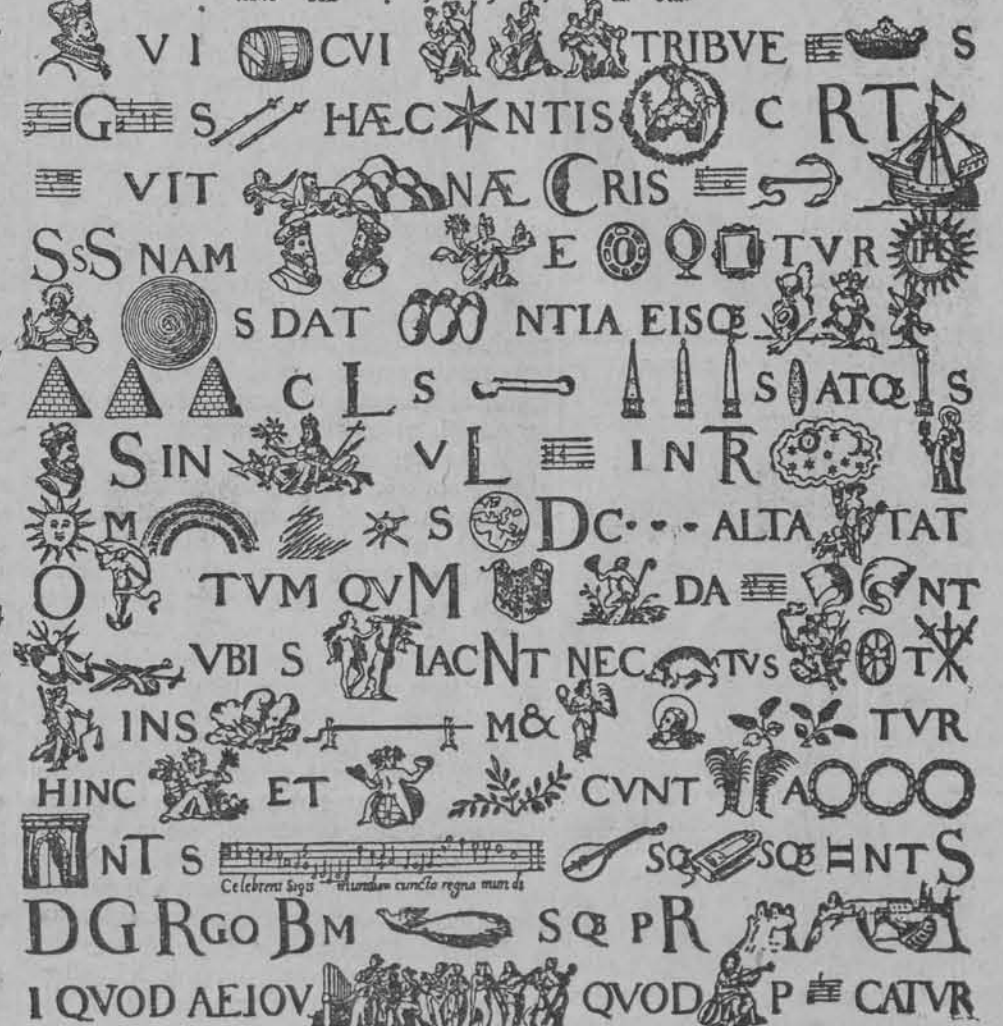 V I CVI TRIBVE S
G S HÆC NTIS C RT
VIT NÆ CRIS
SsS NAM E O Q TVR IHS
S DAT NTIA EISQ
C L S S ATQ S
S IN V L IN TR
M S DC... ALTA TAT
O TVM QVM DA NT
VBI S IACNT NEC TVS T
INS M& TVR
HINC ET CVNT A
NT S Celebrent Sigis mundum cuncta regna mundi SQ SQ NTS
DG RGO BM SQ PR
I QVOD AEIOV QVOD P CATVR